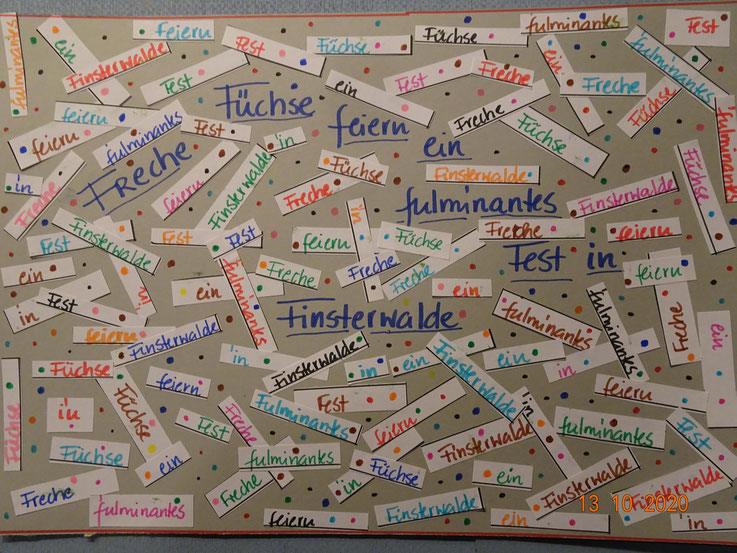 Freche
Füchse
feiern
ein
fulminantes
Fest in
Finsterwalde
fulminantes
ein
Finsterwalde
feiern
Fest
Fest
Füchse
ein
Füchse
Fest
Freche
fulminantes
ein
Freche
fulminantes
Fest
Füchse
fulminantes
feiern
feiern
fulminantes
Fest
in
Freche
feiern
Finsterwalde
in
Füchse
Freche
Freche
Füchse
Finsterwalde
Finsterwalde
Füchse
feiern
Fest
Finsterwalde
Fest
Fest
feiern
in
Füchse
Freche
Freche
Freche
Freche
feiern
ein
in
Fest
in
ein
fulminantes
ein
fulminantes
fulminantes
Freche
ein
feiern
Finsterwalde
in
Finsterwalde
in
ein
Finsterwalde
ein
in
feiern
Füchse
Füchse
in
Füchse
feiern
Fest
Freche
fulminantes
Fest
feiern
Finsterwalde
in
fulminantes
Fest
Füchse
ein
fulminantes
Freche
in
Füchse
ein
Finsterwalde
Finsterwalde
Freche
fulminantes
feiern
Finsterwalde
ein
in
13 10 2020